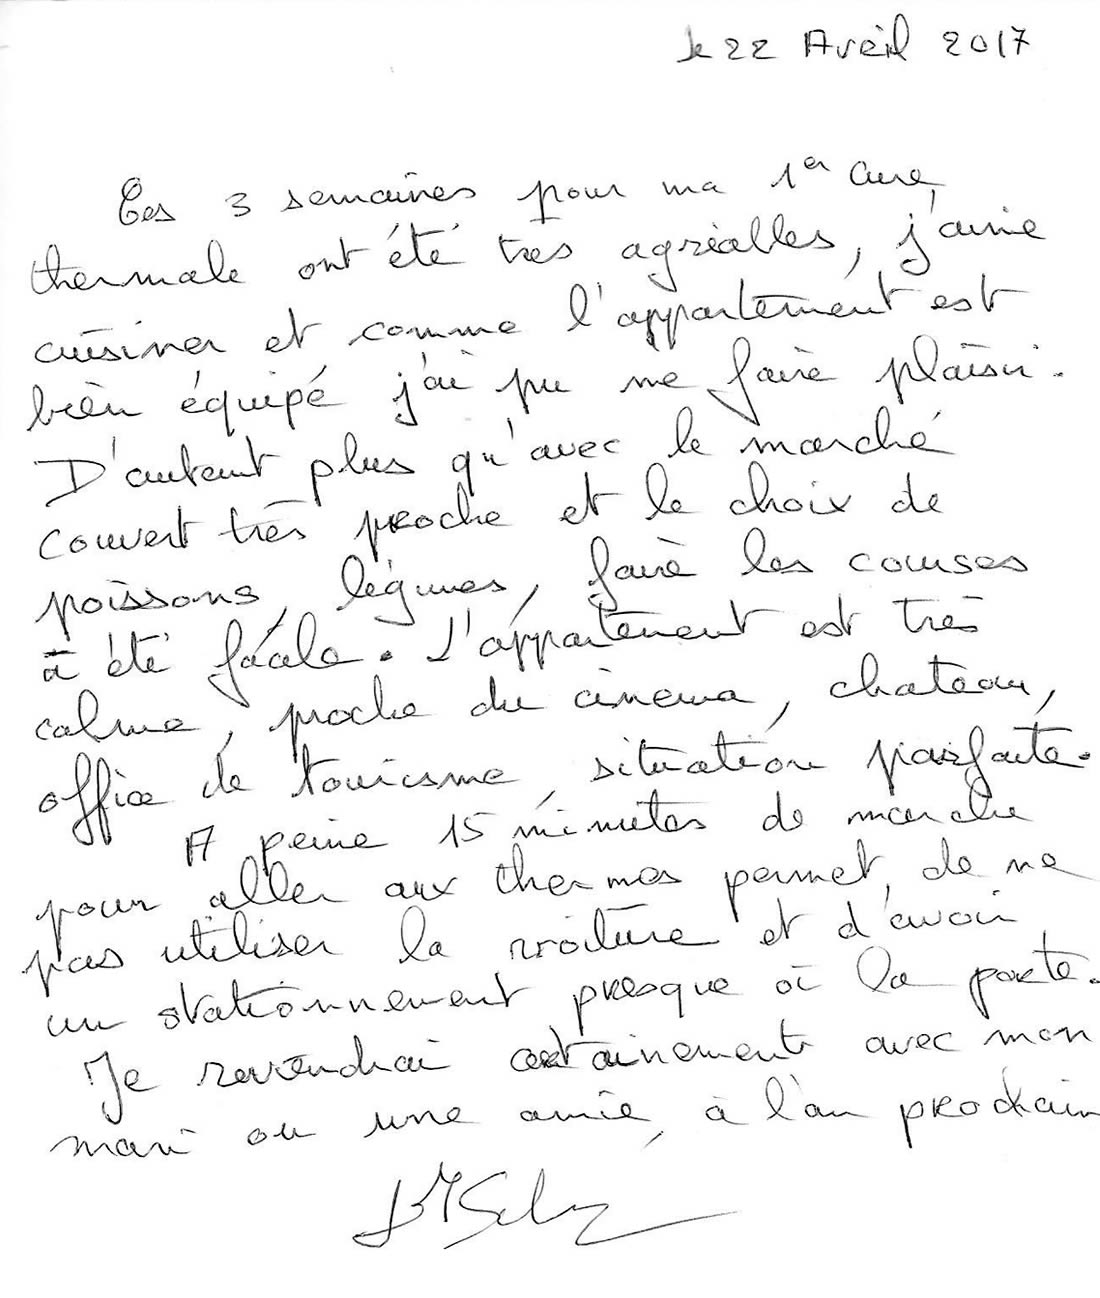 le 22 Avril 2017
Ces 3 semaines pour ma 1er cure,
thermale ont été très agréables, j'aime
cuisiner et comme l'appartement est
bien équipé j'ai pu me faire plaisir.
D'autant plus qu'avec le marché
couvert très proche et le choix de
poissons, légumes, faire les courses
à été facile. L'appartement est très
calme, proche du cinema, chateau,
office de tourisme, situation parfaite.
A peine 15 minutes de marche
pour aller aux thermes permet, de ne
pas utiliser la voiture et d'avoir
un stationnement presque à la porte.
Je reviendrai certainement avec mon
mari ou une amie, à l'an prochain